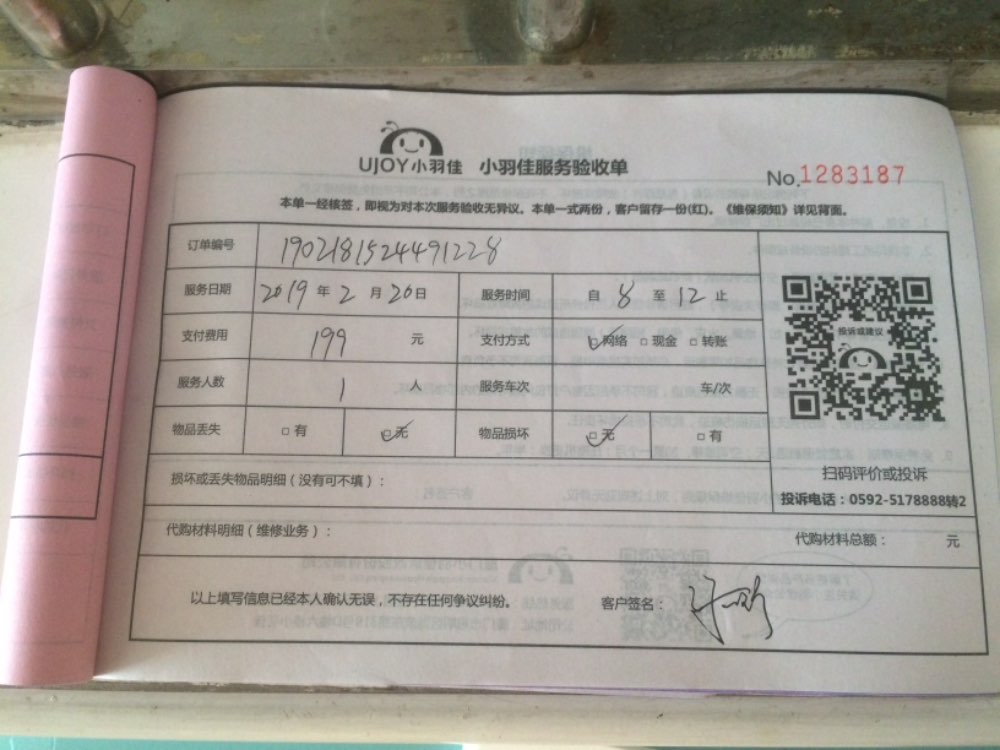 UJOY小羽佳 小羽佳服务验收单
No.1283187
本单一经核签，即视为对本次服务验收无异议。本单一式两份，客户留存一份(红)。《维保须知》详见背面。
订单编号 1902181524491228
服务日期 2019年2月20日 服务时间 自8至12止
支付费用 199元 支付方式 ☑网络 □现金 □转账
服务人数 1人 服务车次 车/次
物品丢失 □有 ☑无 物品损坏 ☑无 □有
投诉或建议
扫码评价或投诉
投诉电话：0592-5178888转2
损坏或丢失物品明细（没有可不填）：
代购材料明细（维修业务）： 代购材料总额： 元
以上填写信息已经本人确认无误，不存在任何争议纠纷。 客户签名：